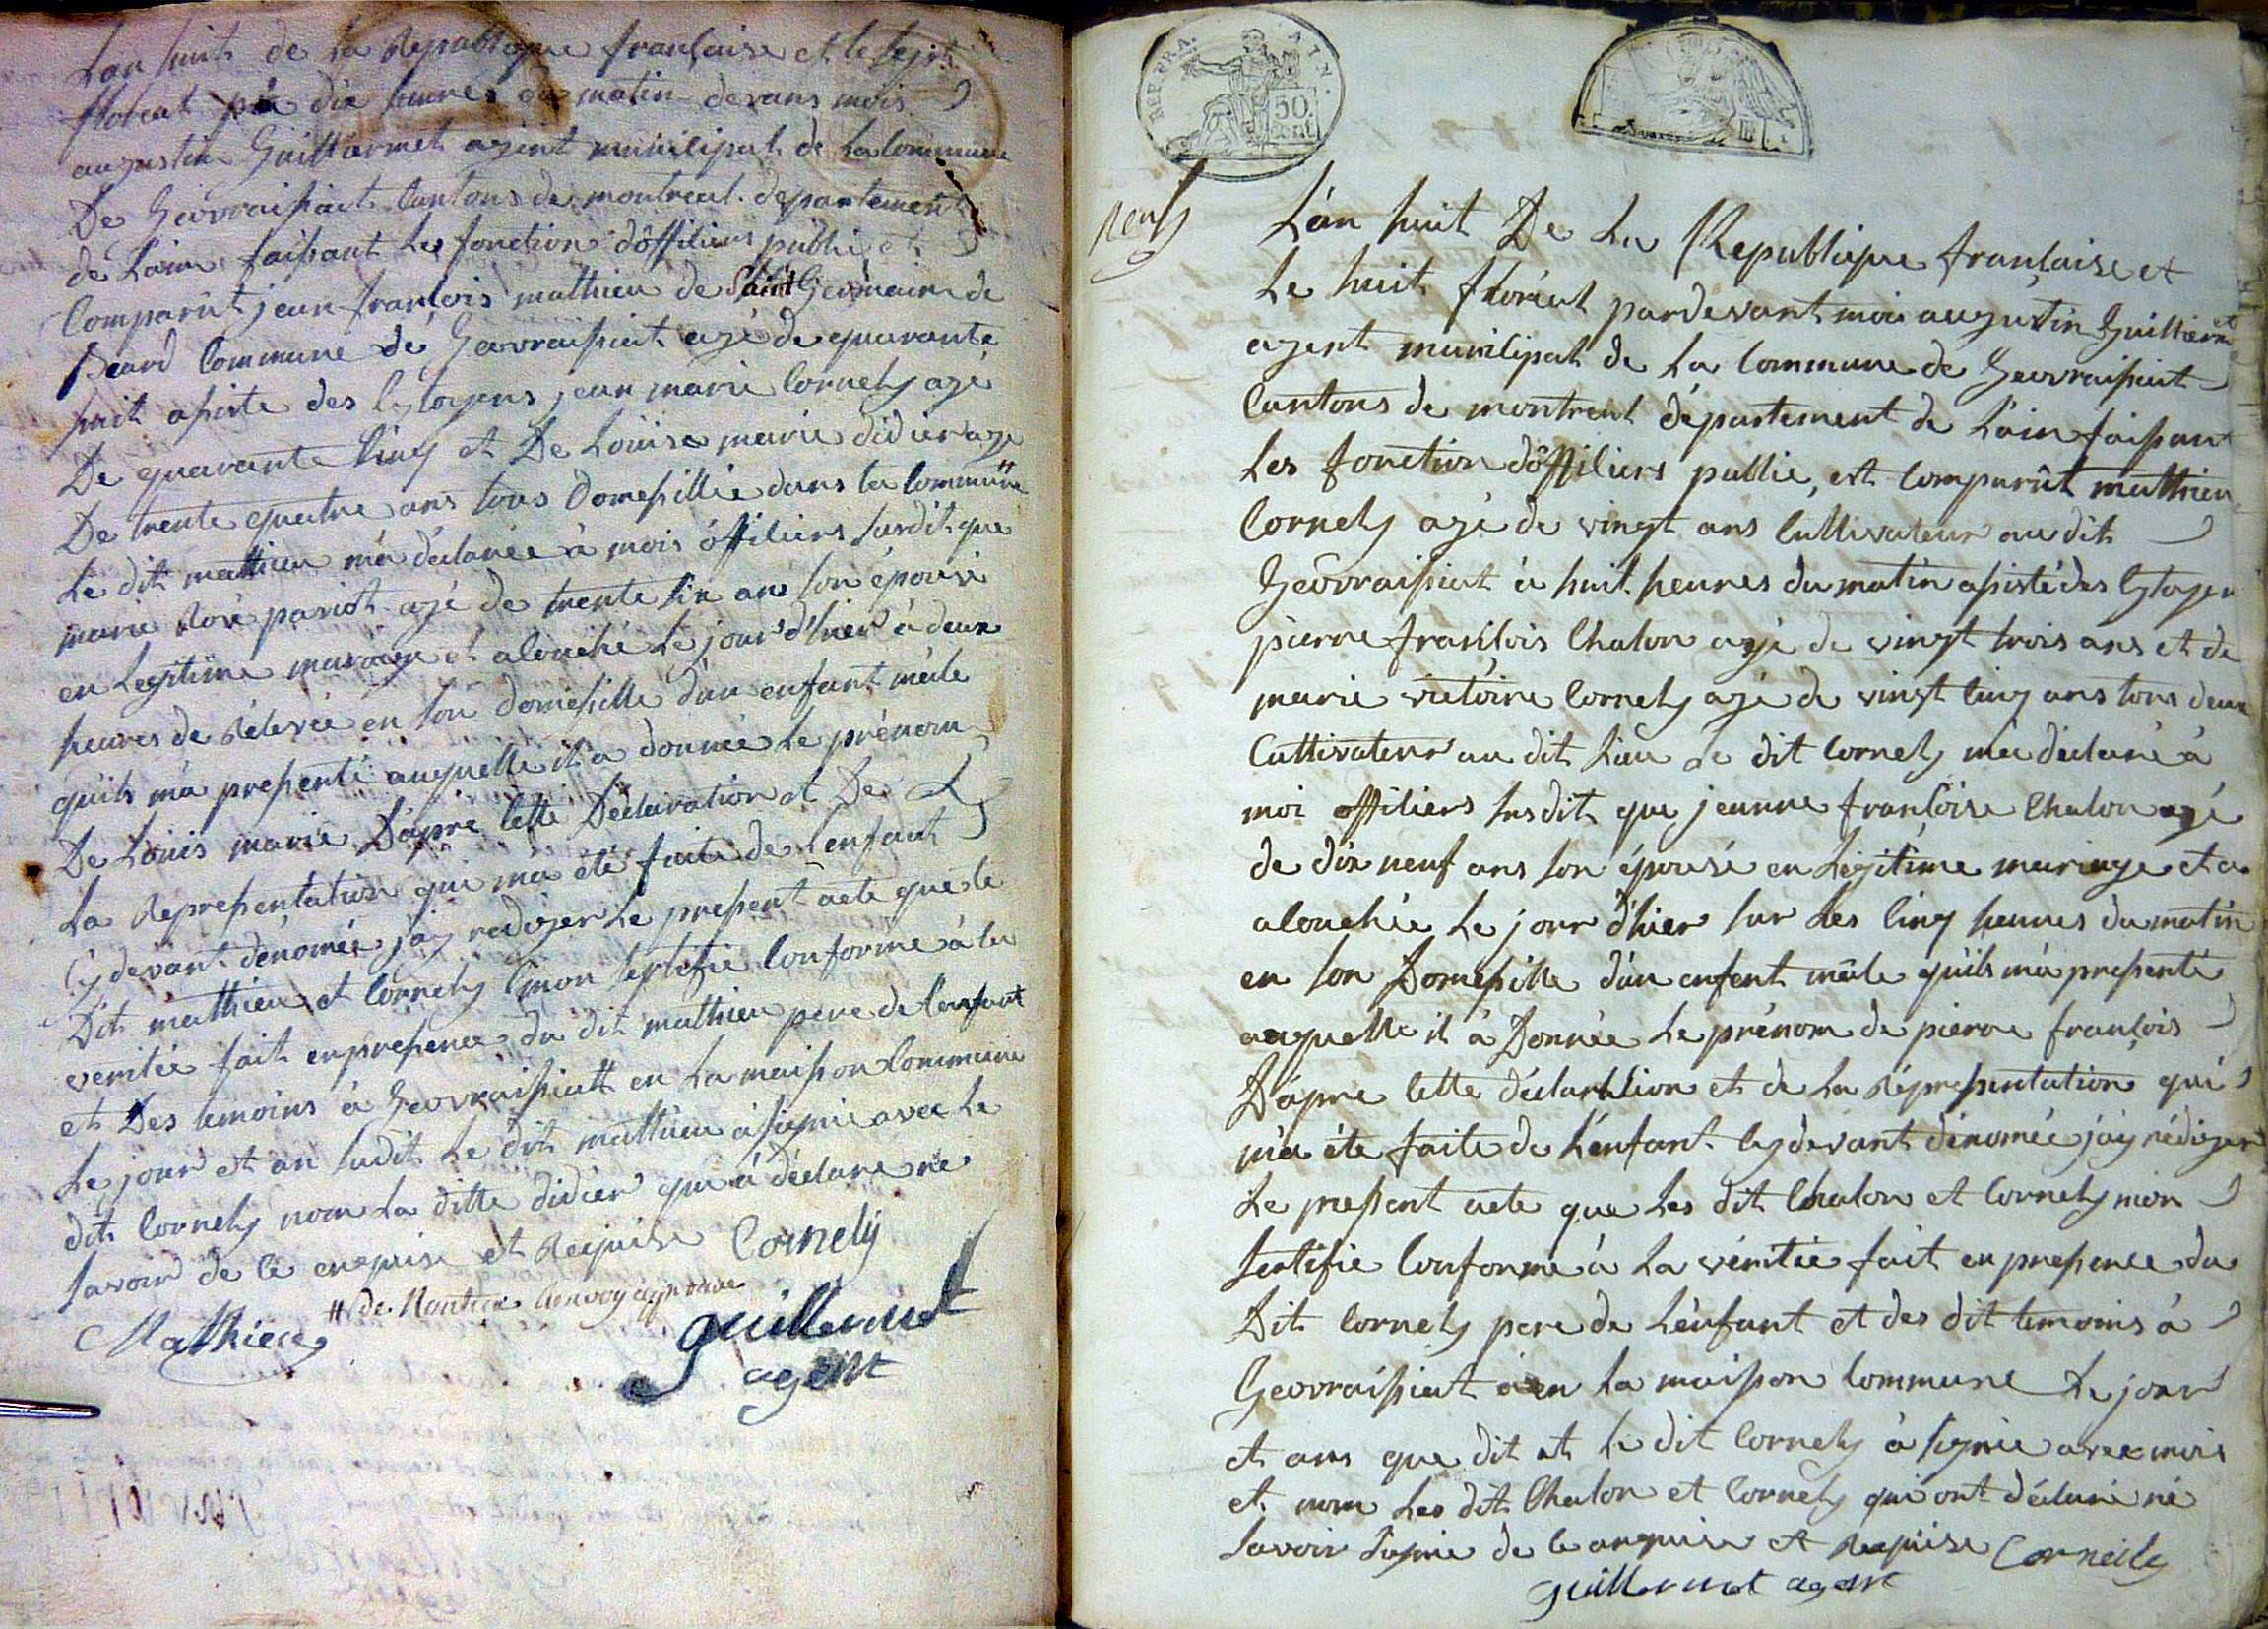 L'an huit de la Republique francaise et le sept
floreal à dix heures du matin devans mois
augustin Guillermet agent municipal de la Commune
De Geovraissiat Cantons de montreal departement
de Lain faissant les fonction d'officiers public et
Comparût jean francois mathieu de Saint Germain de
Beard Commune de Geovraissiat agé de quarante
huit assiste des Cytoyens jean marie Cornely agé
De quarante Cinq et De Louise marie didier age
De trente quatre ans tous Domessillié dans la Commune #
Le dit mathieu m'a déclarée à mois officiers susdit que
marie Rose pariot agé de trente six ans son épouse
en Legitime mariage et acouché le jour d'hier à deux
heures de Relevée en son domessille d'un enfant mâle
qu'ils m'a pressenté auquelle il a donnée le prénom
De Louis marie D'apre cette Déclaration et De
La Represssentation qui m'a été faite de l'enfant
Cy devant dénomée j'ay rediger le pressent acte que le
Dit mathieu et Cornely m'on sertifie Conforme à la
veritée fait en pressence du dit mathieu pere de l'enfant
et Des temoins à Geovraissiatt en la maisson Commune
Le jour et an sudit Le dit mathieu à signie avec le
dit Cornely nom la ditte didier qui à déclare ne
savoir de ce enquise et Requise Cornely
# de Nantua
Mathieu guillermet
agent
REP. FRA. AIN
50 cent
neuf
L'an huit De La Republique francaise et
Le huit floréal pardevant moi augustin Guillermet
agent municipal de La Commune de Geovraissiat
Cantons de montreal département de L'ain faissant
Les fonction d'officiers public, et Comparût mathieu
Cornely agé de vingt ans Cultivateur au dit
Geovraissiat à huit heures du matin assisté des Cytoyen
pierre francois Chalon agé de vingt trois ans et de
marie victoire Cornely agé de vingt Cinq ans tous deux
Cultivateur au dit Lieu Le dit Cornely m'a déclaré à
moi officiers susdit que jeanne francoise Chalon agé
de dix neuf ans son épouse en Légitime mariage et a
acouchée Le jour d'hier sur Les Cinq heures du matin
en son Domessille d'un enfent mâle qu'ils m'à pressenté
auquelle il à Donnée Le prénom de pierre francois
D'apre Cette déclarattion et de La Répressentation qui
m'a éte faite de L'enfant Cy devant dénomée j'ay rédiger
Le pressent acte que Les dit Chalon et Cornely m'on
sertifie Conforme à La véritée fait en pressence du
Dit Cornely pere de L'enfant et des dit temoins à
Geovraissiat à en La maisson Commune Le jour
et ans que dit et le dit Cornely à signie avec mois
et nom Les dit Chalon et Cornely qui ont déclaré ne
savoir signie de ce enquise et Requise Corneily
guillermet agent